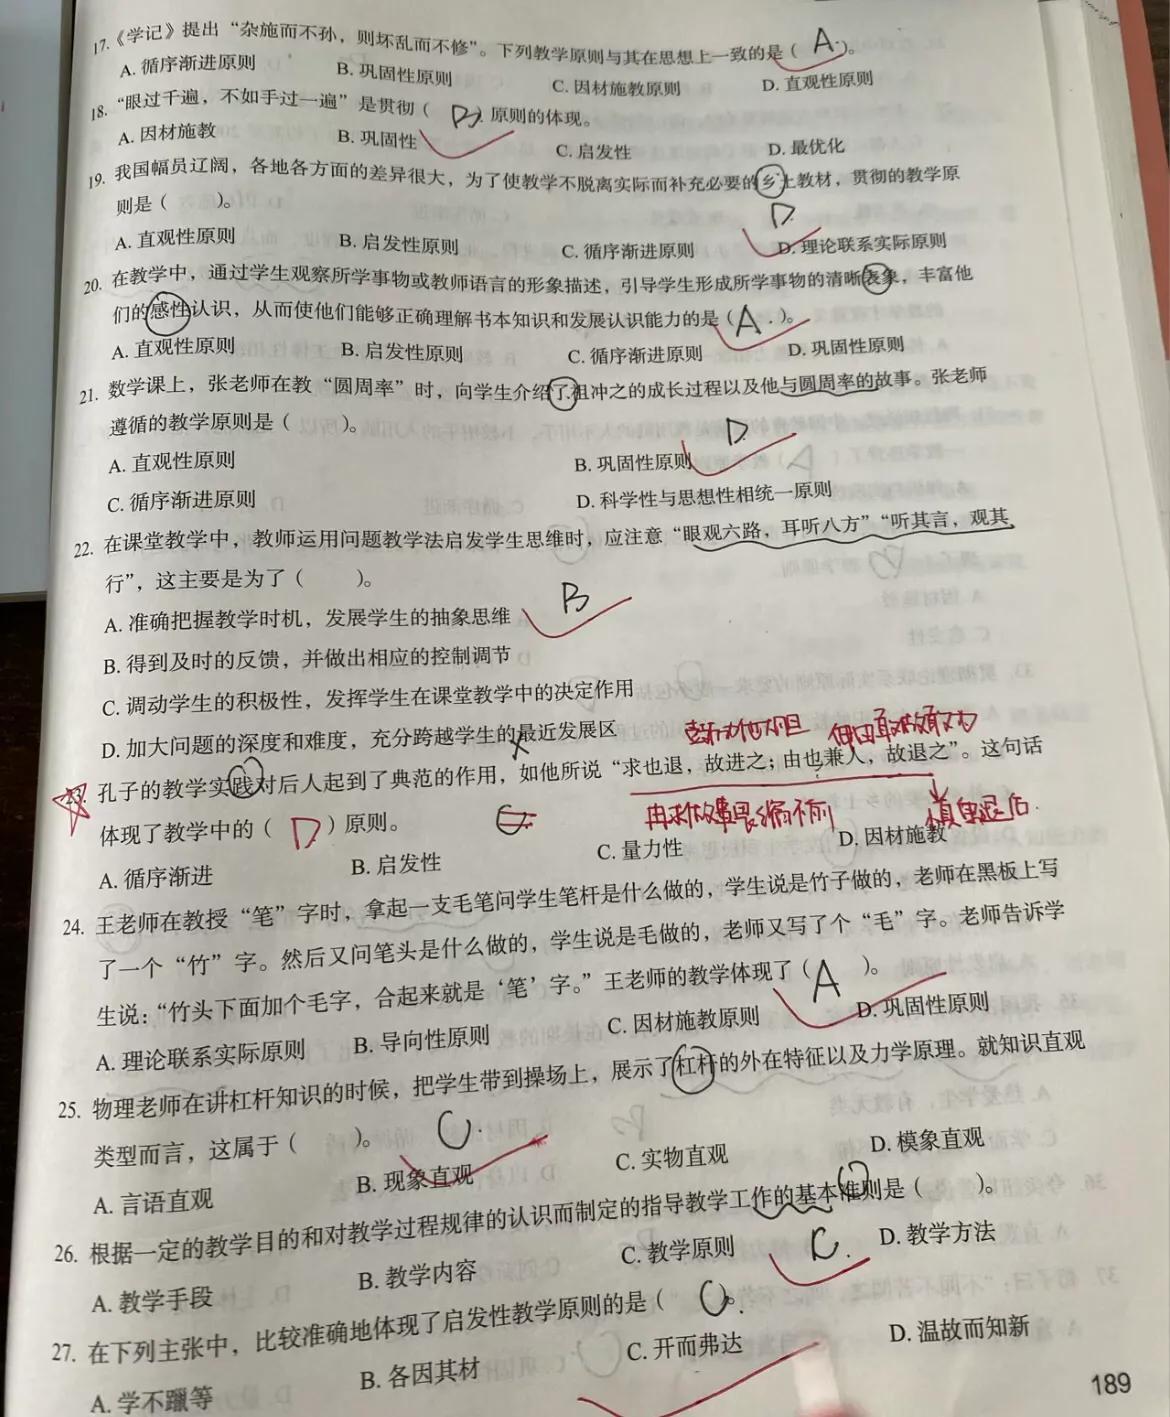 17.《学记》提出“杂施而不孙，则坏乱而不修”。下列教学原则与其在思想上一致的是（ A. ）。
A. 循序渐进原则 B. 巩固性原则 C. 因材施教原则 D. 直观性原则
18. “眼过千遍，不如手过一遍”是贯彻（ B ）原则的体现。
A. 因材施教 B. 巩固性 C. 启发性 D. 最优化
19. 我国幅员辽阔，各地各方面的差异很大，为了使教学不脱离实际而补充必要的乡土教材，贯彻的教学原
则是（ ）。 D
A. 直观性原则 B. 启发性原则 C. 循序渐进原则 D. 理论联系实际原则
20. 在教学中，通过学生观察所学事物或教师语言的形象描述，引导学生形成所学事物的清晰表象，丰富他
们的感性认识，从而使他们能够正确理解书本知识和发展认识能力的是（ A . ）。
A. 直观性原则 B. 启发性原则 C. 循序渐进原则 D. 巩固性原则
21. 数学课上，张老师在教“圆周率”时，向学生介绍了祖冲之的成长过程以及他与圆周率的故事。张老师
遵循的教学原则是（ ）。 D
A. 直观性原则 B. 巩固性原则
C. 循序渐进原则 D. 科学性与思想性相统一原则
22. 在课堂教学中，教师运用问题教学法启发学生思维时，应注意“眼观六路，耳听八方”“听其言，观其
行”，这主要是为了（ ）。 B
A. 准确把握教学时机，发展学生的抽象思维
B. 得到及时的反馈，并做出相应的控制调节
C. 调动学生的积极性，发挥学生在课堂教学中的决定作用
D. 加大问题的深度和难度，充分跨越学生的最近发展区
23. 孔子的教学实践对后人起到了典范的作用，如他所说“求也退，故进之；由也兼人，故退之”。这句话
体现了教学中的（ D ）原则。
A. 循序渐进 B. 启发性 C. 量力性 D. 因材施教
24. 王老师在教授“笔”字时，拿起一支毛笔问学生笔杆是什么做的，学生说是竹子做的，老师在黑板上写
了一个“竹”字。然后又问笔头是什么做的，学生说是毛做的，老师又写了个“毛”字。老师告诉学
生说：“竹头下面加个毛字，合起来就是‘笔’字。”王老师的教学体现了（ A ）。
A. 理论联系实际原则 B. 导向性原则 C. 因材施教原则 D. 巩固性原则
25. 物理老师在讲杠杆知识的时候，把学生带到操场上，展示了杠杆的外在特征以及力学原理。就知识直观
类型而言，这属于（ ）。 C.
A. 言语直观 B. 现象直观 C. 实物直观 D. 模象直观
26. 根据一定的教学目的和对教学过程规律的认识而制定的指导教学工作的基本准则是（ ）。
A. 教学手段 B. 教学内容 C. 教学原则 C. D. 教学方法
27. 在下列主张中，比较准确地体现了启发性教学原则的是（ C ）。
A. 学不躐等 B. 各因其材 C. 开而弗达 D. 温故而知新
189